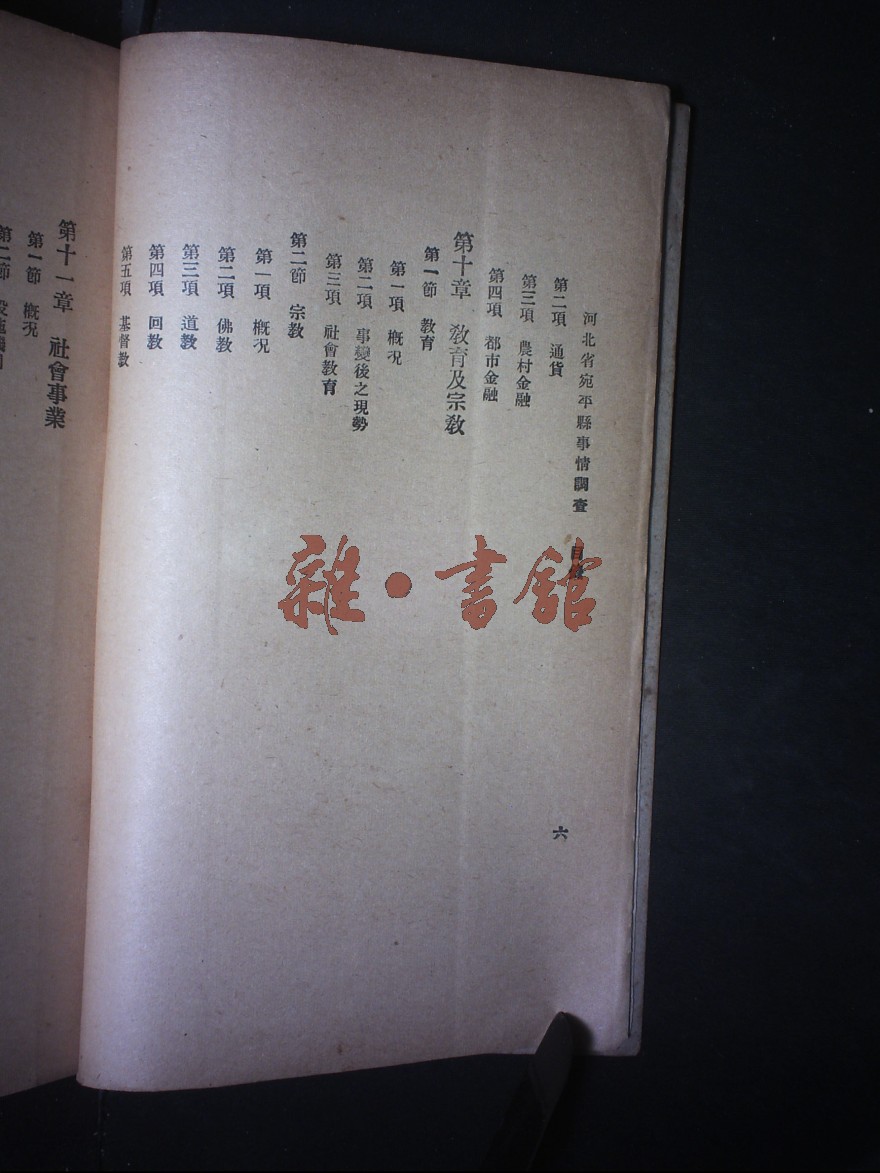 河北省宛平縣事情調查 目錄
第二項 通貨
第三項 農村金融
第四項 都市金融
第十章 教育及宗教
第一節 教育
第一項 概况
第二項 事變後之現勢
第三項 社會教育
第二節 宗教
第一項 概况
第二項 佛教
第三項 道教
第四項 回教
第五項 基督教
六
第十一章 社會事業
第一節 概况
第二節
雜·書館